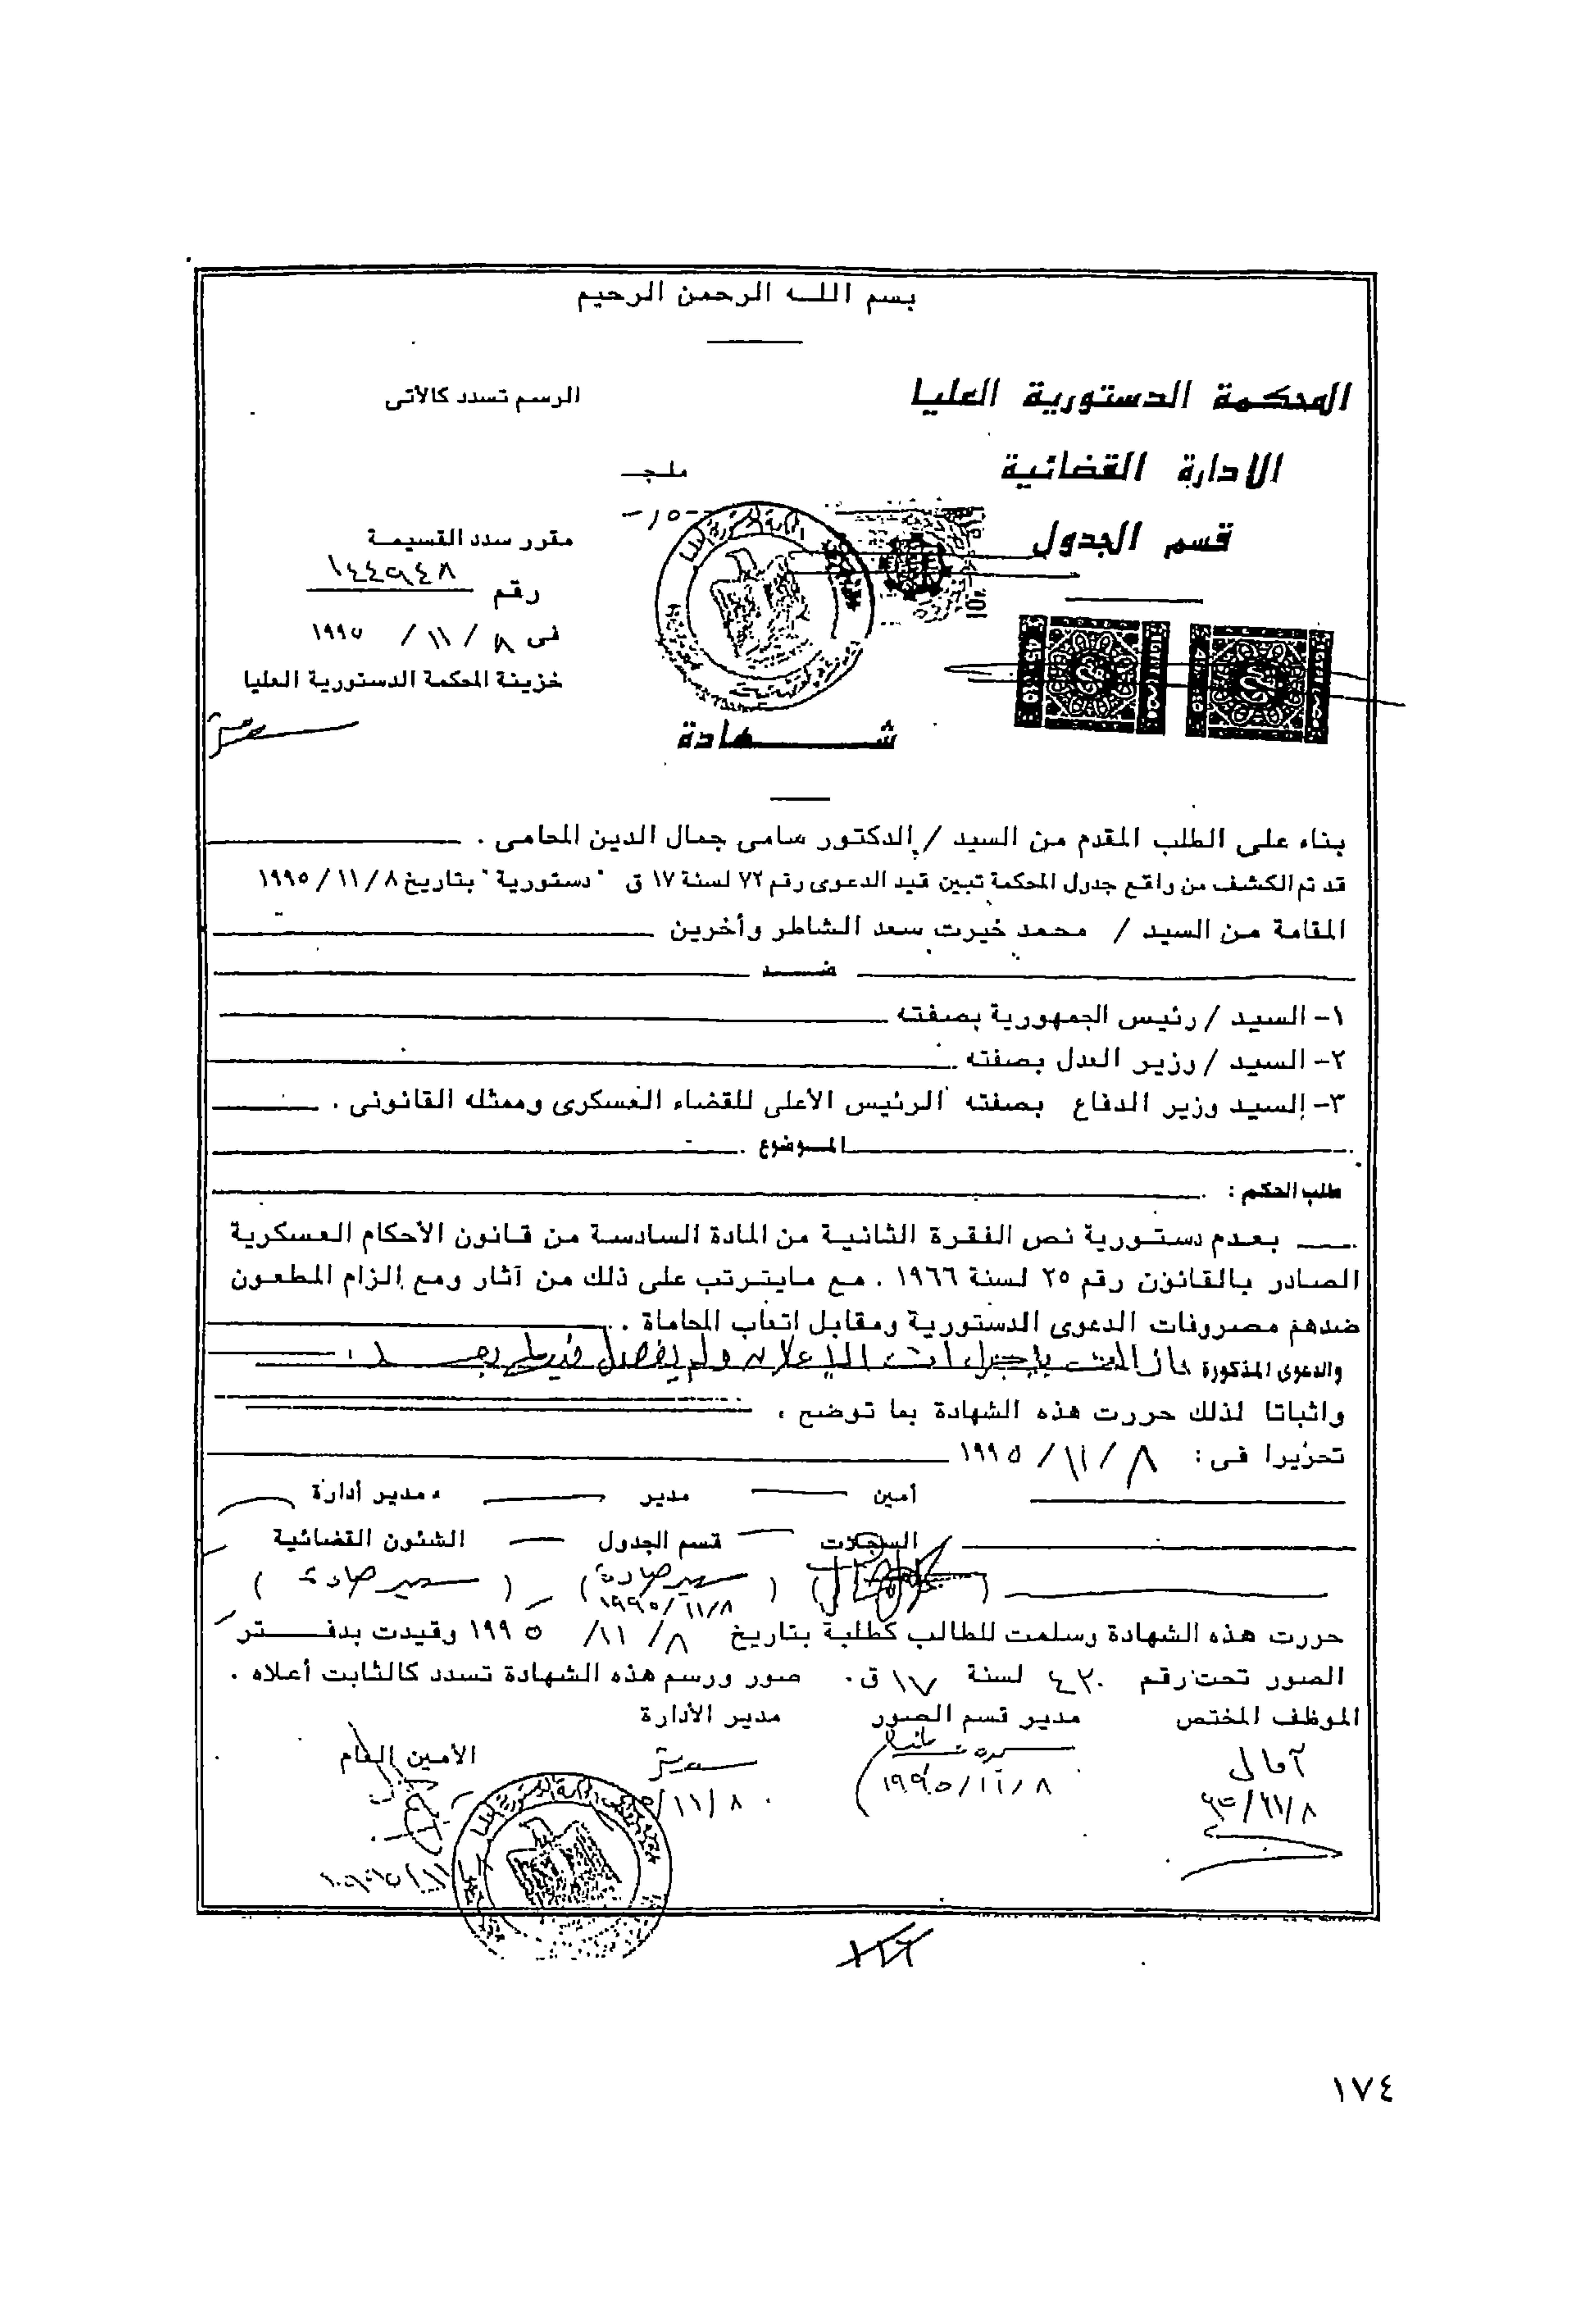 بسم اللـه الرحمن الرحيم
المحكمة الدستورية العليا
الرسم تسدد كالآتى
الادارة القضائية
مليجـ
قسم الجدول
مقرر سدد القسيمة
رقم ١٤٤٩٤٨
فى ٨ / ١١ / ١٩٩٥
خزينة المحكمة الدستورية العليا
شــــهادة
بناء على الطلب المقدم من السيد / الدكتور سامى جمال الدين المحامى .
قد تم الكشف من واقع جدول المحكمة تبين قيد الدعوى رقم ٧٢ لسنة ١٧ ق "دستورية" بتاريخ ٨/ ١١/ ١٩٩٥
المقامة من السيد / محمد خيرت سعد الشاطر وأخرين
ضـــد
١- السيد / رئيس الجمهورية بصفته
٢- السيد / وزير العدل بصفته
٣- السيد وزير الدفاع بصفته الرئيس الأعلى للقضاء العسكرى وممثله القانونى .
المـوضوع
طلب الحكم :
بعـدم دستـورية نص الفقرة الثانية من المادة السادسة من قانون الأحكام العسكرية
الصادر بالقانون رقم ٢٥ لسنة ١٩٦٦ . مع مايترتب على ذلك من آثار ومع إلزام المطعون
ضدهم مصروفات الدعوى الدستورية ومقابل اتعاب المحاماة .
والدعوى المذكورة مازالت بإجراءات الإعلان ولم يفصل فيها بعـــد .
واثباتا لذلك حررت هذه الشهادة بما توضح ،
تحريرا فى : ٨ / ١١ / ١٩٩٥
أمين مدير مدير أدارة
السجلات قسم الجدول الشئون القضائية
١٩٩٥/١١/٨
حررت هذه الشهادة وسلمت للطالب كطلبة بتاريخ ٨ / ١١/ ١٩٩٥ وقيدت بدفـــتر
الصور تحت رقم ٤٢٠ لسنة ١٧ ق . صور ورسم هذه الشهادة تسدد كالثابت أعلاه .
الموظف المختص مدير قسم الصور مدير الأدارة
الأمين العام
آمال
١٩٩٥/١١/٨
١٧٤